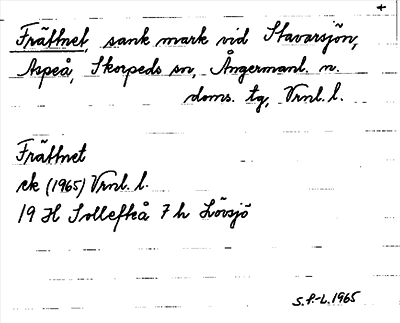 +
Frättnet, sank mark vid Stavarsjön,
Aspeå, Skorpeds sn, Ångermanl. n.
doms. tg, Vrnl. l.
Frättnet
ek (1965) Vrnl. l.
19 H Sollefteå 7 h Lövsjö
S.P-L. 1965